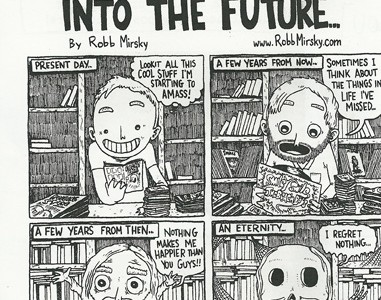 INTO THE FUTURE...
By Robb Mirsky
www.RobbMirsky.com
PRESENT DAY..
LOOKIT ALL THIS
COOL STUFF I'M
STARTING TO
AMASS!
A FEW YEARS FROM NOW..
SOMETIMES I
THINK ABOUT
THE THINGS IN
LIFE I'VE
MISSED..
A FEW YEARS FROM THEN..
NOTHING
MAKES ME
HAPPIER THAN
YOU GUYS!!
AN ETERNITY..
I REGRET
NOTHING...